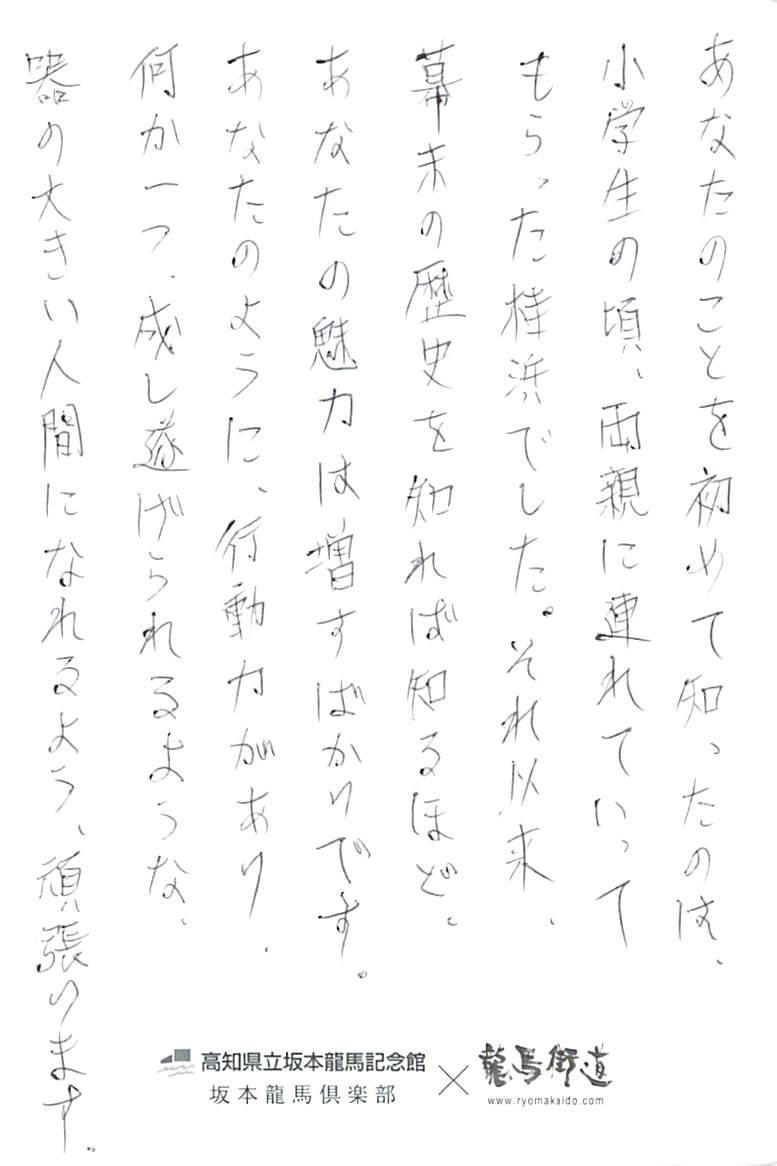 あなたのことを初めて知ったのは、
小学生の頃、両親に連れていって
もらった桂浜でした。それ以来、
幕末の歴史を知れば知るほど、
あなたの魅力は増すばかりです。
あなたのように、行動力があり、
何か一つ、成し遂げられるような、
器の大きい人間になれるよう、頑張ります。
高知県立坂本龍馬記念館
坂本龍馬倶楽部
×
龍馬街道
www.ryomakaido.com